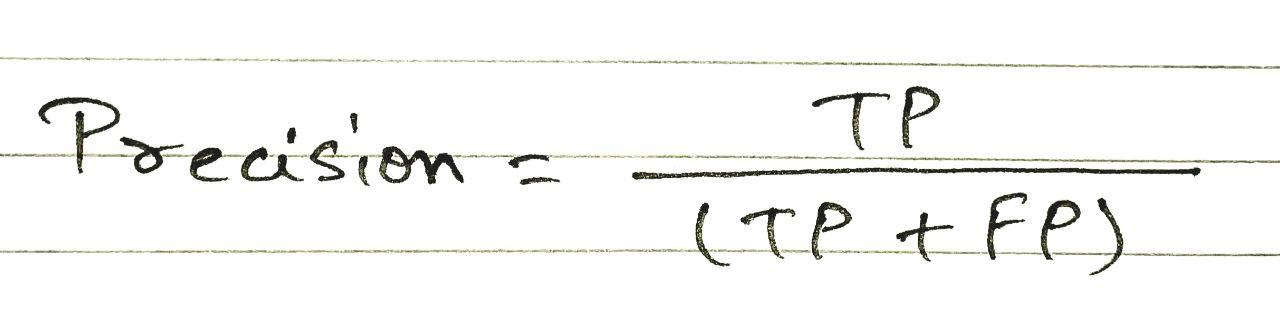 Precision = TP / (TP + FP)